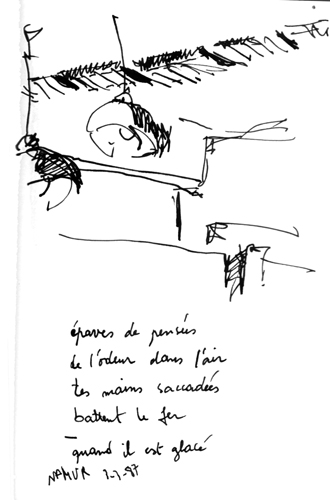 épaves de pensées
de l'odeur dans l'air
tes mains saccadées
battent le fer
quand il est glacé
NAMUR